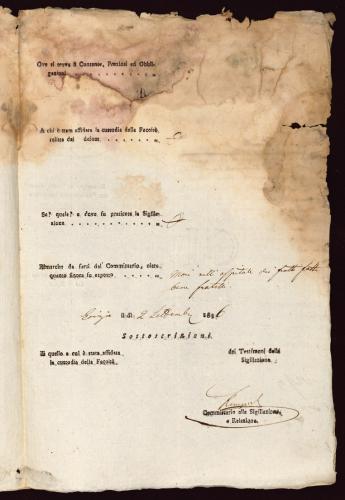 Ove si trova il Contante, Preziosi ed Obbli-
gazioni . . . . . . . . . . . . .
A chi è stata affidata la custodia della Facoltà
relitta dal defunto . . . . . . . . .
Se? quale? e dove fu praticata la Sigilla-
zione . . . . . . . . . . . .
Rimarche da farsi dal Commissario, oltre
quanto finora fu esposto . . . . . . .
Morì nell'ospitale dei fate bene
fratelli.
li 2 Settembre 18
Sottoscrizioni
di quello a cui è stata affidata
la custodia della Facoltà
dei Testimonj della
Sigillazione.
Commissario alla Sigillazione
e Relazione.